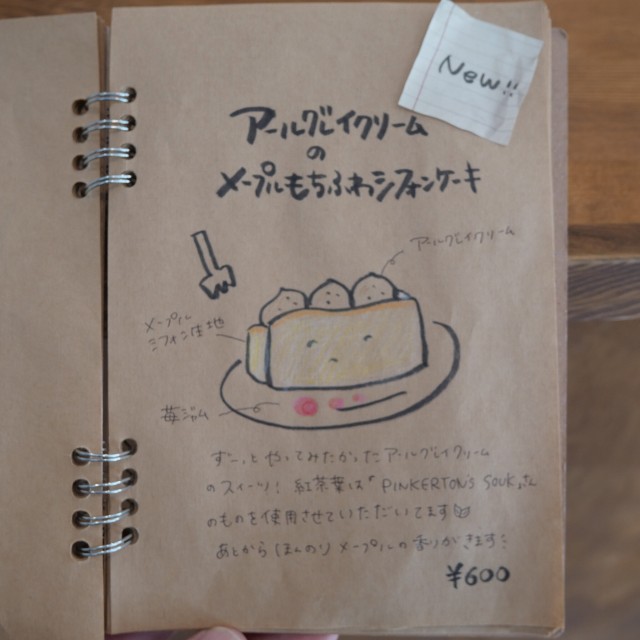 New!!
アールグレイクリーム
の
メープルもちふわシフォンケーキ
アールグレイクリーム
メープル
シフォン生地
苺ジャム
ずーっとやってみたかったアールグレイクリーム
のスイーツ! 紅茶葉は「PINKERTON'S SOUK」さん
のものを使用させていただいてます
あとからほんのりメープルの香りがきます
¥600